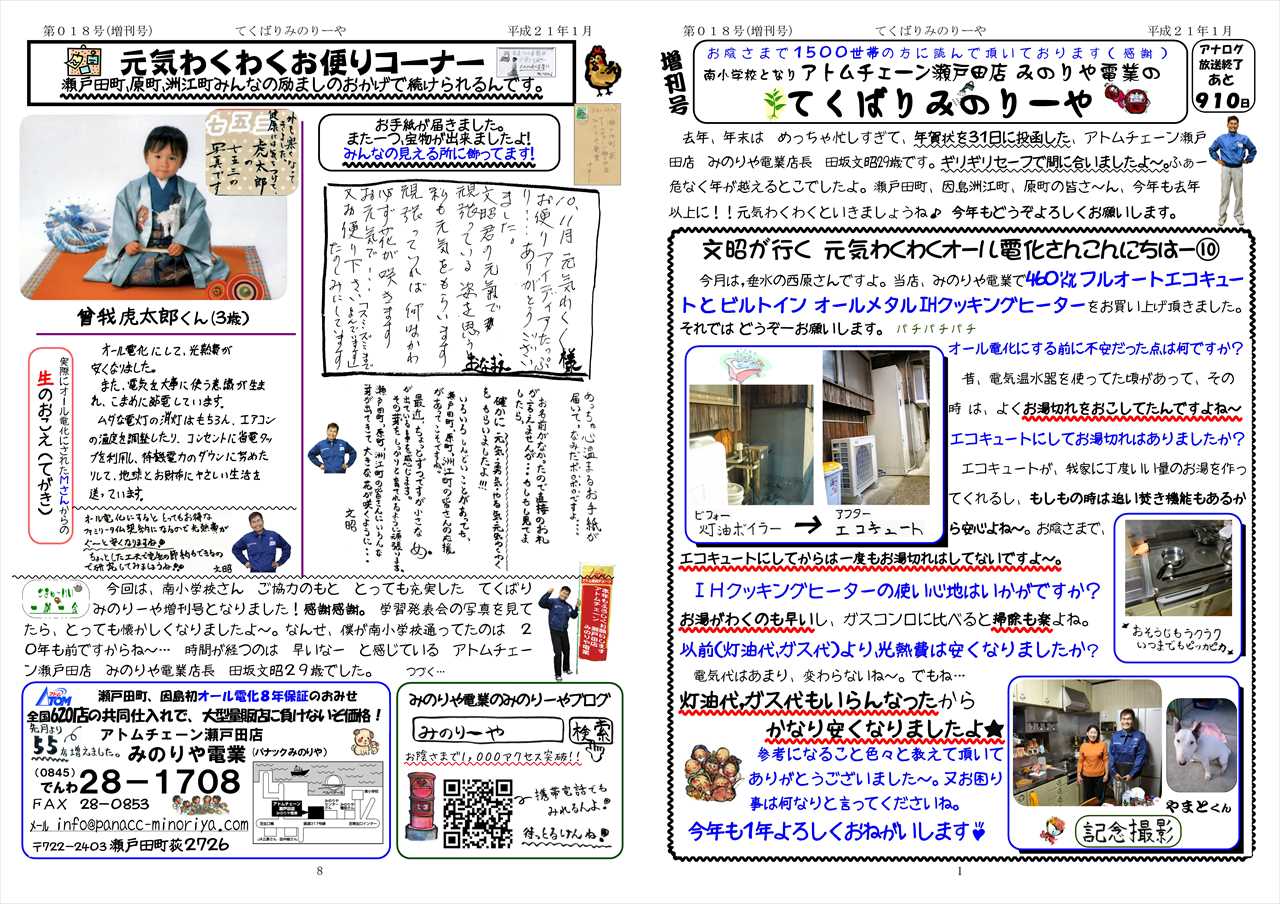 第018号(増刊号)
てくばりみのりーや
平成21年1月
元気わくわくお便りコーナー
瀬戸田町,原町,洲江町みんなの励ましのおかげで続けられるんです。
お手紙が届きました。
また一つ,宝物が出来ましたよ!
みんなの見える所に飾ってます!
七五三
虎太郎
の
七五三の
写真です
曾我虎太郎くん(3歳)
10,11月元気わくわく
お便りアイディアたっぷ
り…ありがとうござい
ました。
文昭君の元気で
頑張っている姿を思う
私も元気をもらいます
頑張っていれば何時かわ
必ず花が咲きます
お元気で!…
又お便り下さい
たのしみにしています
実際にオール電化にされたMさんからの
生のおこえ(てがき)
オール電化にして、光熱費が
安くなりました。
また、電気を大事に使う意識が生ま
れ、こまめに節電しています。
ムダな電灯の消灯はもちろん、エアコン
の温度を調整したり、コンセントに省電タッ
プを利用し、待機電力のダウンに努めた
りして、地球とお財布にやさしい生活を
送っています。
オール電化にするととってもお得な
ファミリータイム契約になるので光熱費が
ぐーっと安くなりますよね
ちょっとした工夫で電気の節約もできるの
で研究してみましょうね
文昭
めっちゃ心温まるお手紙が
届いて。なみだポロポロですよ…
お名前がなかったので直接のお礼
が言えませんが…もしも見てま
したら、
確かに、元気・勇気・やる気・元気わくわく
をもらいましたよ!!!
いろいろしんどいことがあっても、
瀬戸田町、原町、洲江町の皆さんの応援
があってこそですね。
最近、ちょっとずつですが小さなめ
が出ている事を感じます。
その芽をしっかりと育てれるように頑張ります。
瀬戸田町、原町、洲江町の皆さんにいろんな
芽が出てきて、大きな花が咲くように…
文昭
今回は、南小学校さん ご協力のもと とっても充実した てくばり
みのりーや増刊号となりました!感謝感謝。 学習発表会の写真を見て
たら、とっても懐かしくなりましたよ〜。なんせ、僕が南小学校通ってたのは 2
0年も前ですからね〜… 時間が経つのは 早いなー と感じている アトムチェー
ン瀬戸田店 みのりや電業店長 田坂文昭29歳でした。 つづく…
ATOM
瀬戸田町、因島初オール電化8年保証のおみせ
全国620店の共同仕入れで、大型量販店に負けないぞ価格!
先月より
55店増えました。
アトムチェーン瀬戸田店
みのりや電業(パナックみのりや)
(0845)
でんわ 28-1708
FAX 28-0853
メール info@panacc-minoriya.com
〒722-2403 瀬戸田町荻2726
みのりや電業のみのりーやブログ
みのりーや
検索
お陰さまで1,000アクセス突破!!
携帯電話でも
みれるんよ!
待っとるけんね!
8
第018号(増刊号)
てくばりみのりーや
平成21年1月
増刊号
お陰さまで1500世帯の方に読んで頂いております(感謝)
南小学校となり アトムチェーン瀬戸田店 みのりや電業の
てくばりみのりーや
アナログ
放送終了
あと
910日
去年、年末は めっちゃ忙しすぎて、年賀状を31日に投函した、アトムチェーン瀬戸
田店 みのりや電業店長 田坂文昭29歳です。ギリギリセーフで間に合いましたよ〜。ふぁー
危なく年が越えるとこでしたよ。瀬戸田町、因島洲江町、原町の皆さ〜ん、今年も去年
以上に!!元気わくわくといきましょうね♪ 今年もどうぞよろしくお願いします。
文昭が行く 元気わくわくオール電化さんこんにちはー⑩
今月は,垂水の西原さんですよ。当店、みのりや電業で460㍑フルオートエコキュー
トと ビルトイン オールメタルIHクッキングヒーターをお買い上げ頂きました。
それでは どうぞーお願いします。 パチパチパチ
ビフォー
灯油ボイラー
→
アフター
エコキュート
オール電化にする前に不安だった点は何ですか?
昔、電気温水器を使ってた頃があって、その
時 は、よくお湯切れをおこしてたんですよね〜
エコキュートにしてお湯切れはありましたか?
エコキュートが、我家に丁度いい量のお湯を作っ
てくれるし、もしもの時は追い焚き機能もあるか
ら安心よね〜。お陰さまで、
エコキュートにしてからは一度もお湯切れはしてないですよ〜。
IHクッキングヒーターの使い心地はいかがですか?
お湯がわくのも早いし、ガスコンロに比べると掃除も楽よね。
おそうじもラクラク
いつまでもピッカピカ
以前(灯油代,ガス代)より,光熱費は安くなりましたか?
電気代はあまり、変わらないね〜。でもね…
灯油代,ガス代もいらんなったから
かなり安くなりましたよ★
参考になること色々と教えて頂いて
ありがとうございました〜。又お困り
事は何なりと言ってくださいね。
今年も1年よろしくおねがいします
やまとくん
記念撮影
1